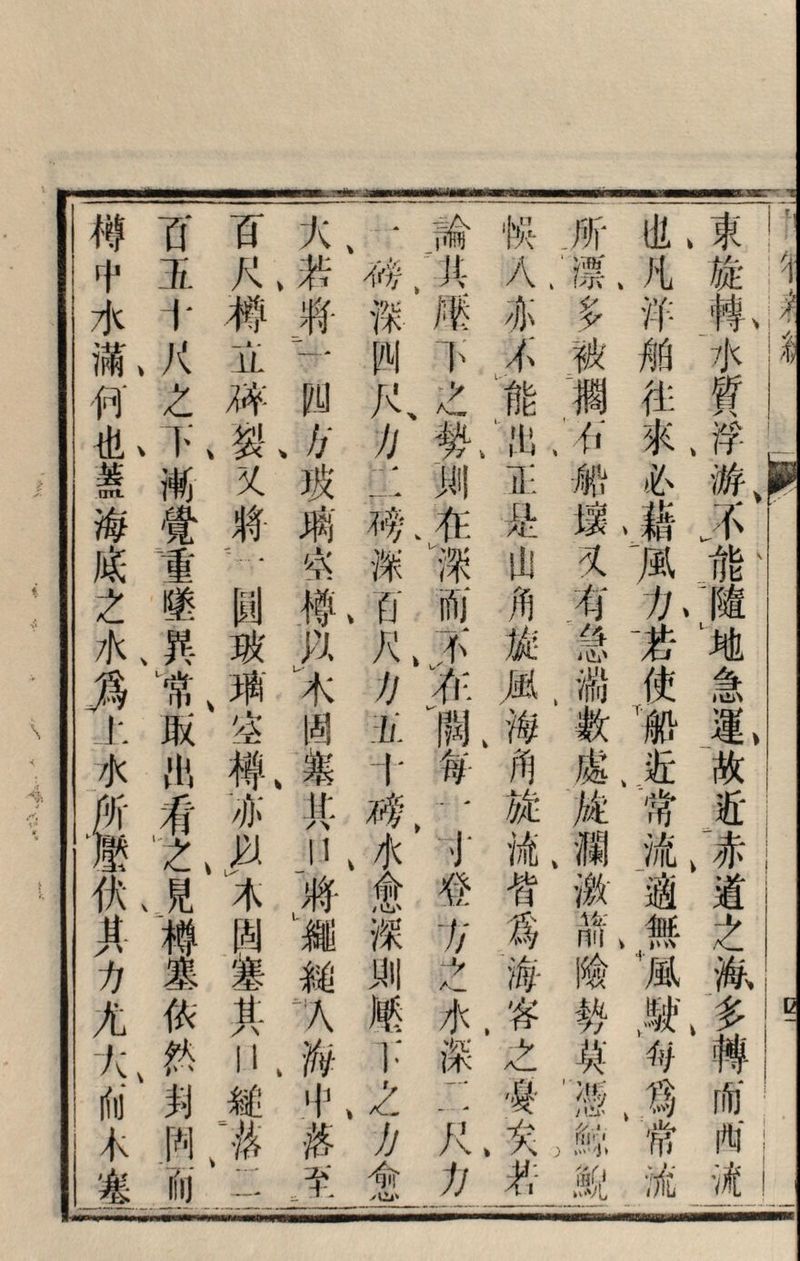 東旋轉、水質浮游、不能隨地急運、故近赤道之海、多轉而西流
也、凡洋舶往來、必藉風力、若使船近常流、適無風駛、每爲常流
所漂、多被擱石船壞、又有急湍數處、旋瀾激箭、險勢莫憑、鯨鯢
悞入、亦不能出、正是山角旋風、海角旋流、皆爲海客之憂矣。若
論其壓下之勢、則在深而不在闊、每一寸登方之水、深二尺、力
一磅、深四尺、力二磅、深百尺、力五十磅、水愈深則壓下之力愈
大、若將一四方玻璃空樽、以木固塞其口、將繩縋入海中、落至
百尺、樽立碎裂、又將一圓玻璃空樽、亦以木固塞其口、縋落二
百五十尺之下、漸覺重墜異常、取出看之、見樽塞依然封固、而
樽中水滿、何也、蓋海底之水、爲上水所壓伏、其力尤大、而木塞